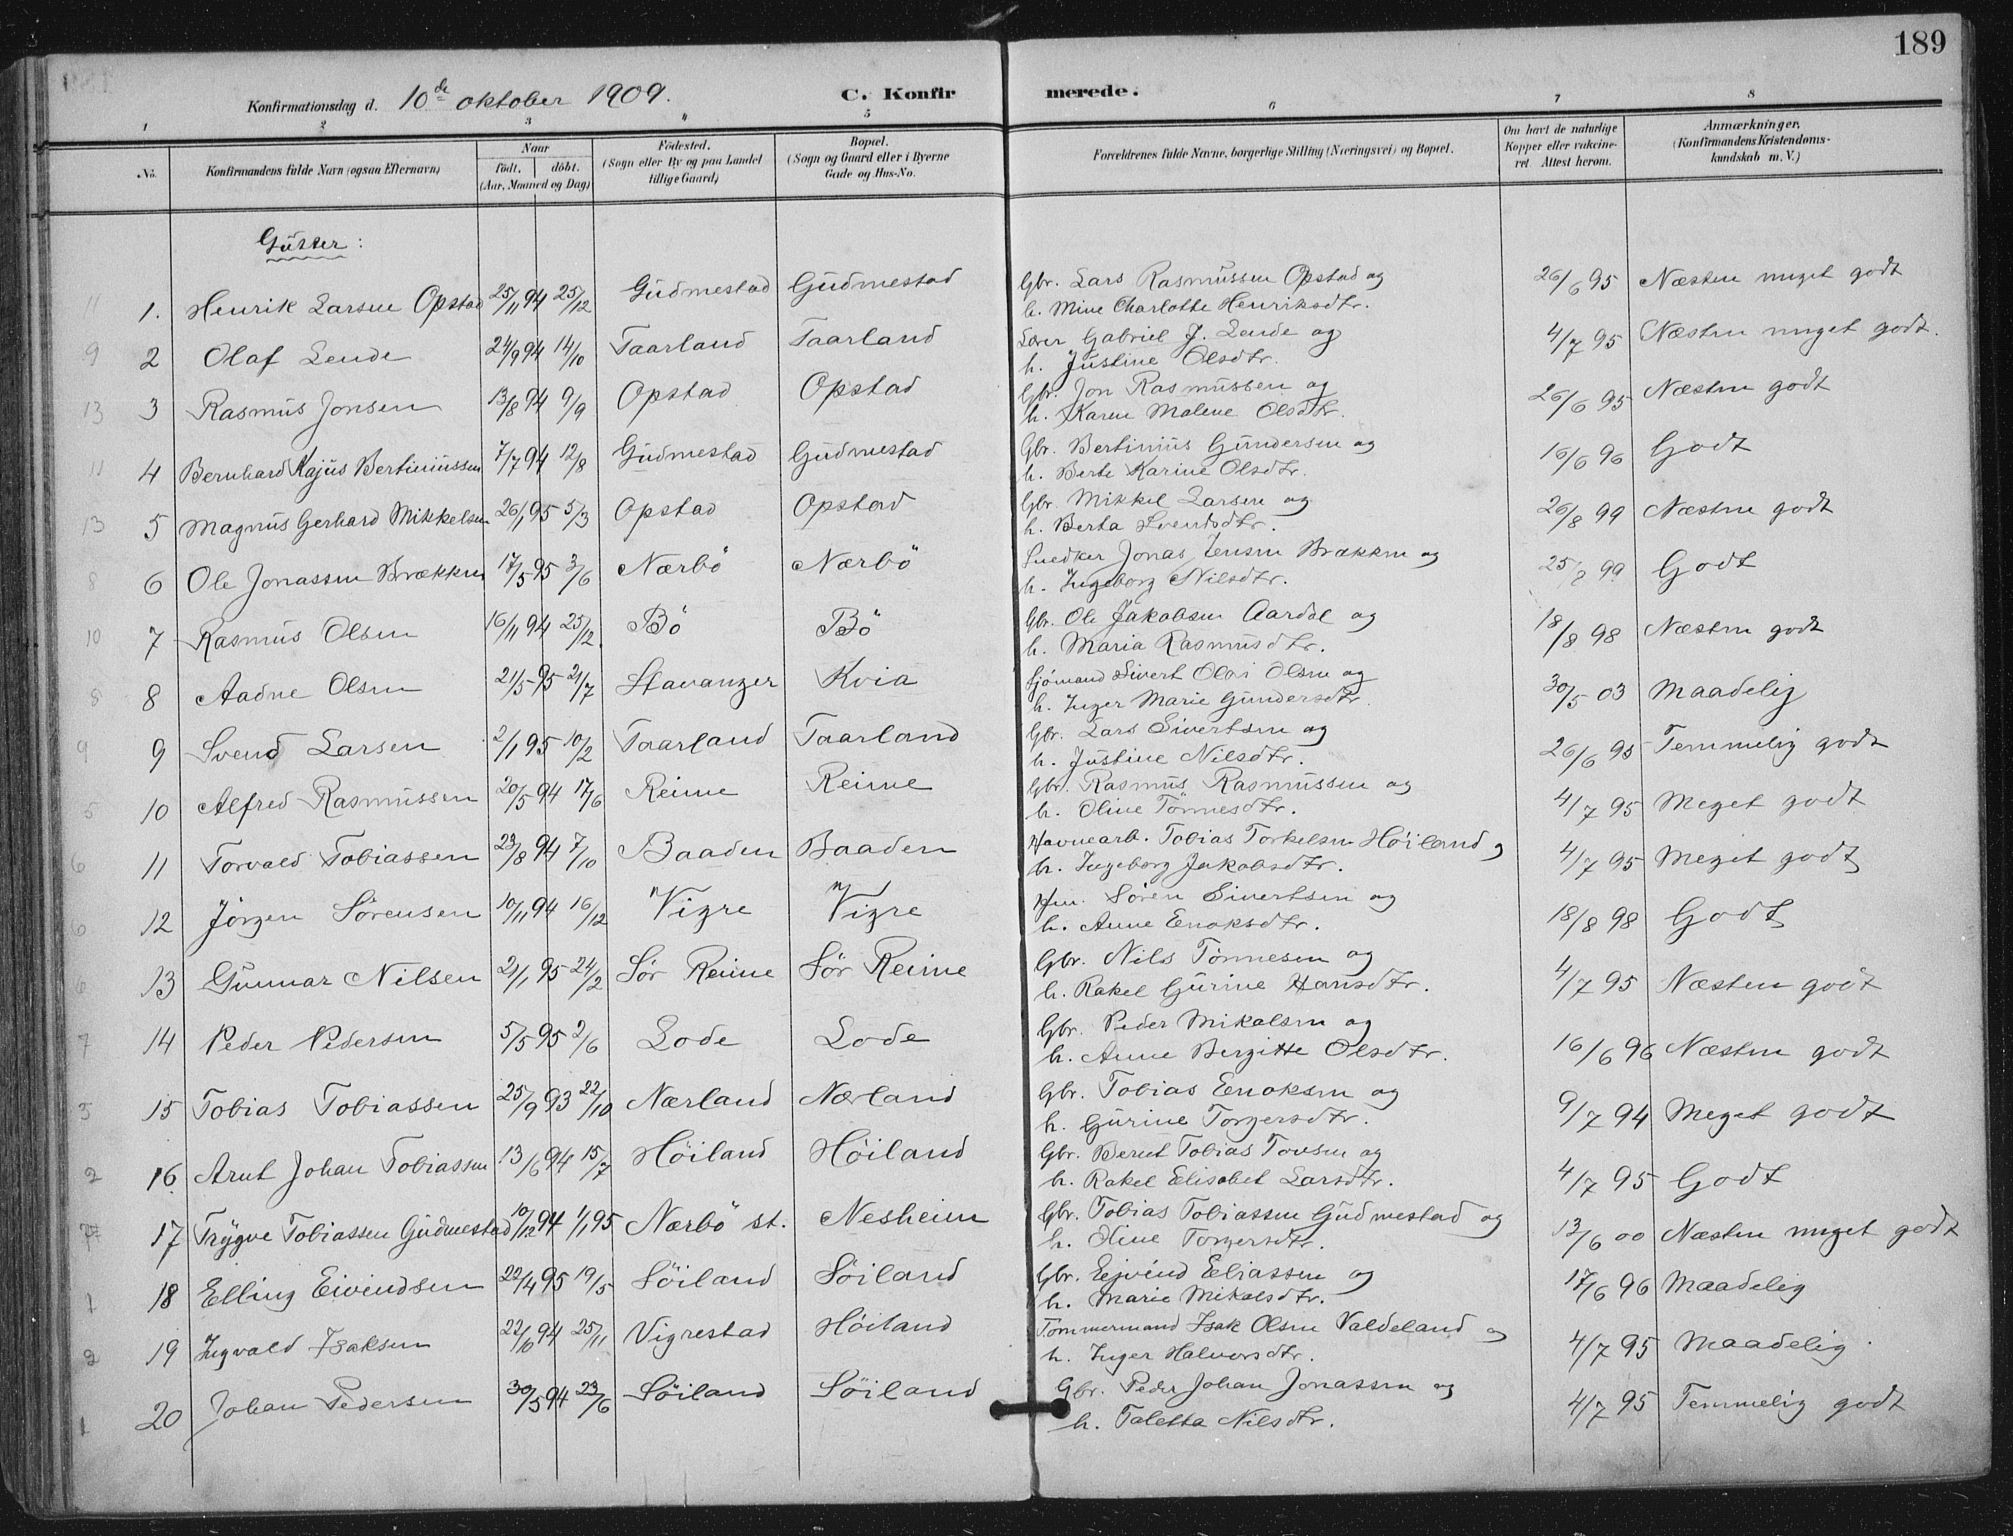 189
Konfirmationsdag d. 10de oktober 1909. C. Konfirmerede.
1 2 3 4 5 6 7 8
No. Konfirmandens fulde Navn (ogsaa Efternavn) Naar født, døbt. (Aar, Maaned og Dag) Fødested. (Sogn eller By og paa Landet tillige Gaard) Bopæl. (Sogn og Gaard eller i Byerne Gade og Hus-No. Forældrenes fulde Navne, borgerlige Stilling (Næringsvei) og Bopæl. Om havt de naturlige Kopper eller vakcineret. Attest herom. Anmærkninger, (Konfirmandens Kristendomskundskab m. V.)
Gutter:
11 1. Henrik Larsen Opstad 25/11 94 25/12 Gudmestad Gudmestad Gbr. Lars Rasmussen Opstad og 26/6 95 Næsten meget godt
h. Mine Charlotte Henriksdtr.
9 2 Olaf Lende 24/9 94 14/10 Taarland Taarland Lærer Gabriel J. Lende og 4/7 95 Næsten meget godt.
h. Justine Olsdtr.
13 3 Rasmus Jonsen 13/8 94 9/9 Opstad Opstad Gbr. Jon Rasmussen og 26/6 95 Næsten godt
h. Karen Malene Olsdtr.
11 4 Bernhard Kajus Bertiniussen 7/7 94 12/8 Gudmestad Gudmestad Gbr. Bertinius Gundersen og 16/6 96 Godt
h. Berte Karine Olsdtr.
13 5 Magnus Gerhard Mikkelsen 26/1 95 5/3 Opstad Opstad Gbr. Mikkel Larsen og 26/8 99 Næsten godt
h. Berta Svendsdtr.
8 6 Ole Jonassen Brækken 17/5 95 3/6 Nærbö Nærbö Snedker Jonas Jensen Brækken og 25/8 99 Godt
h. Ingeborg Nilsdtr.
10 7 Rasmus Olsen 16/11 94 25/12. Bö Bö Gbr. Ole Jakobsen Aardal og 18/8 98 Næsten godt
h. Maria Rasmusdtr.
8 8 Aadne Olsen 21/5 95 21/7 Stavanger Kvia Sjömand Sivert Olai Olsen og 30/5 03 Maadelig
h. Inger Marie Gundersdtr.
9 9 Svend Larsen 2/1 95 10/2 Taarland Taarland Gbr. Lars Sivertsen og 26/6 95 Temmelig godt
h. Justine Nilsdtr.
5 10 Alfred Rasmussen 20/5 94 17/6 Reime Reime Gbr. Rasmus Rasmussen og 4/7 95 Meget godt
h. Oline Tönnesdtr.
6 11 Torvald Tobiassen 23/8 94 7/10 Baaden Baaden Havnearb. Tobias Torkelsen Höiland og 4/7 95 Meget godt
h. Ingeborg Jakobsdtr.
6 12 Jörgen Sörensen 10/11 94 16/12 "Vigre "Vigre Hm. Sören Sivertsen og 18/8 98 Godt
h. Anne Enoksdtr.
6 13 Gunnar Nilsen 21/1 95 24/2 Sör Reime Sör Reime Gbr. Nils Tönnesen og 4/7 95 Næsten godt
h. Rakel Gurine Hansdtr.
7 14 Peder Pedersen 5/5 95 2/6 Lode Lode Gbr. Peder Mikalsen og 16/6 96 Næsten godt
h. Anne Bergitte Olsdtr.
3 15 Tobias Tobiassen 25/9 93 22/10 Nærland Nærland Gbr. Tobias Enoksen og 9/7 94 Meget godt
h. Gurine Torgersdtr.
2 16 Arnt Johan Tobiassen 13/6 94 15/7 Höiland Höiland Gbr. Bernt Tobias Tonsen og 4/7 95 Godt
h. Rakel Elisabet Larsdtr.
17 Trygve Tobiassen Gudmestad 10/12 94 1/1 95 Nærbö st. Nesheim Gbr. Tobias Tobiassen Gudmestad og 13/6 00 Næsten meget godt
h. Oline Torgersdtr.
1 18 Elling Eivindsen 22/4 95 19/5 Söiland Söiland Gbr. Ejvind Eliassen og 17/6 96 Maadelig
h. Marie Mikalsdtr.
2 19 Ingvald Isaksen 22/10 94 25/11 Vigrestad Höiland Tömmermand Isak Olsen Valdeland og 4/7 95 Maadelig.
h. Inger Halvorsdtr.
1 20 Johan Pedersen 30/5 94 23/6 Söiland Söiland Gbr. Peder Johan Jonassen og 4/7 95 Temmelig godt
h. Taletta Nilsdtr.